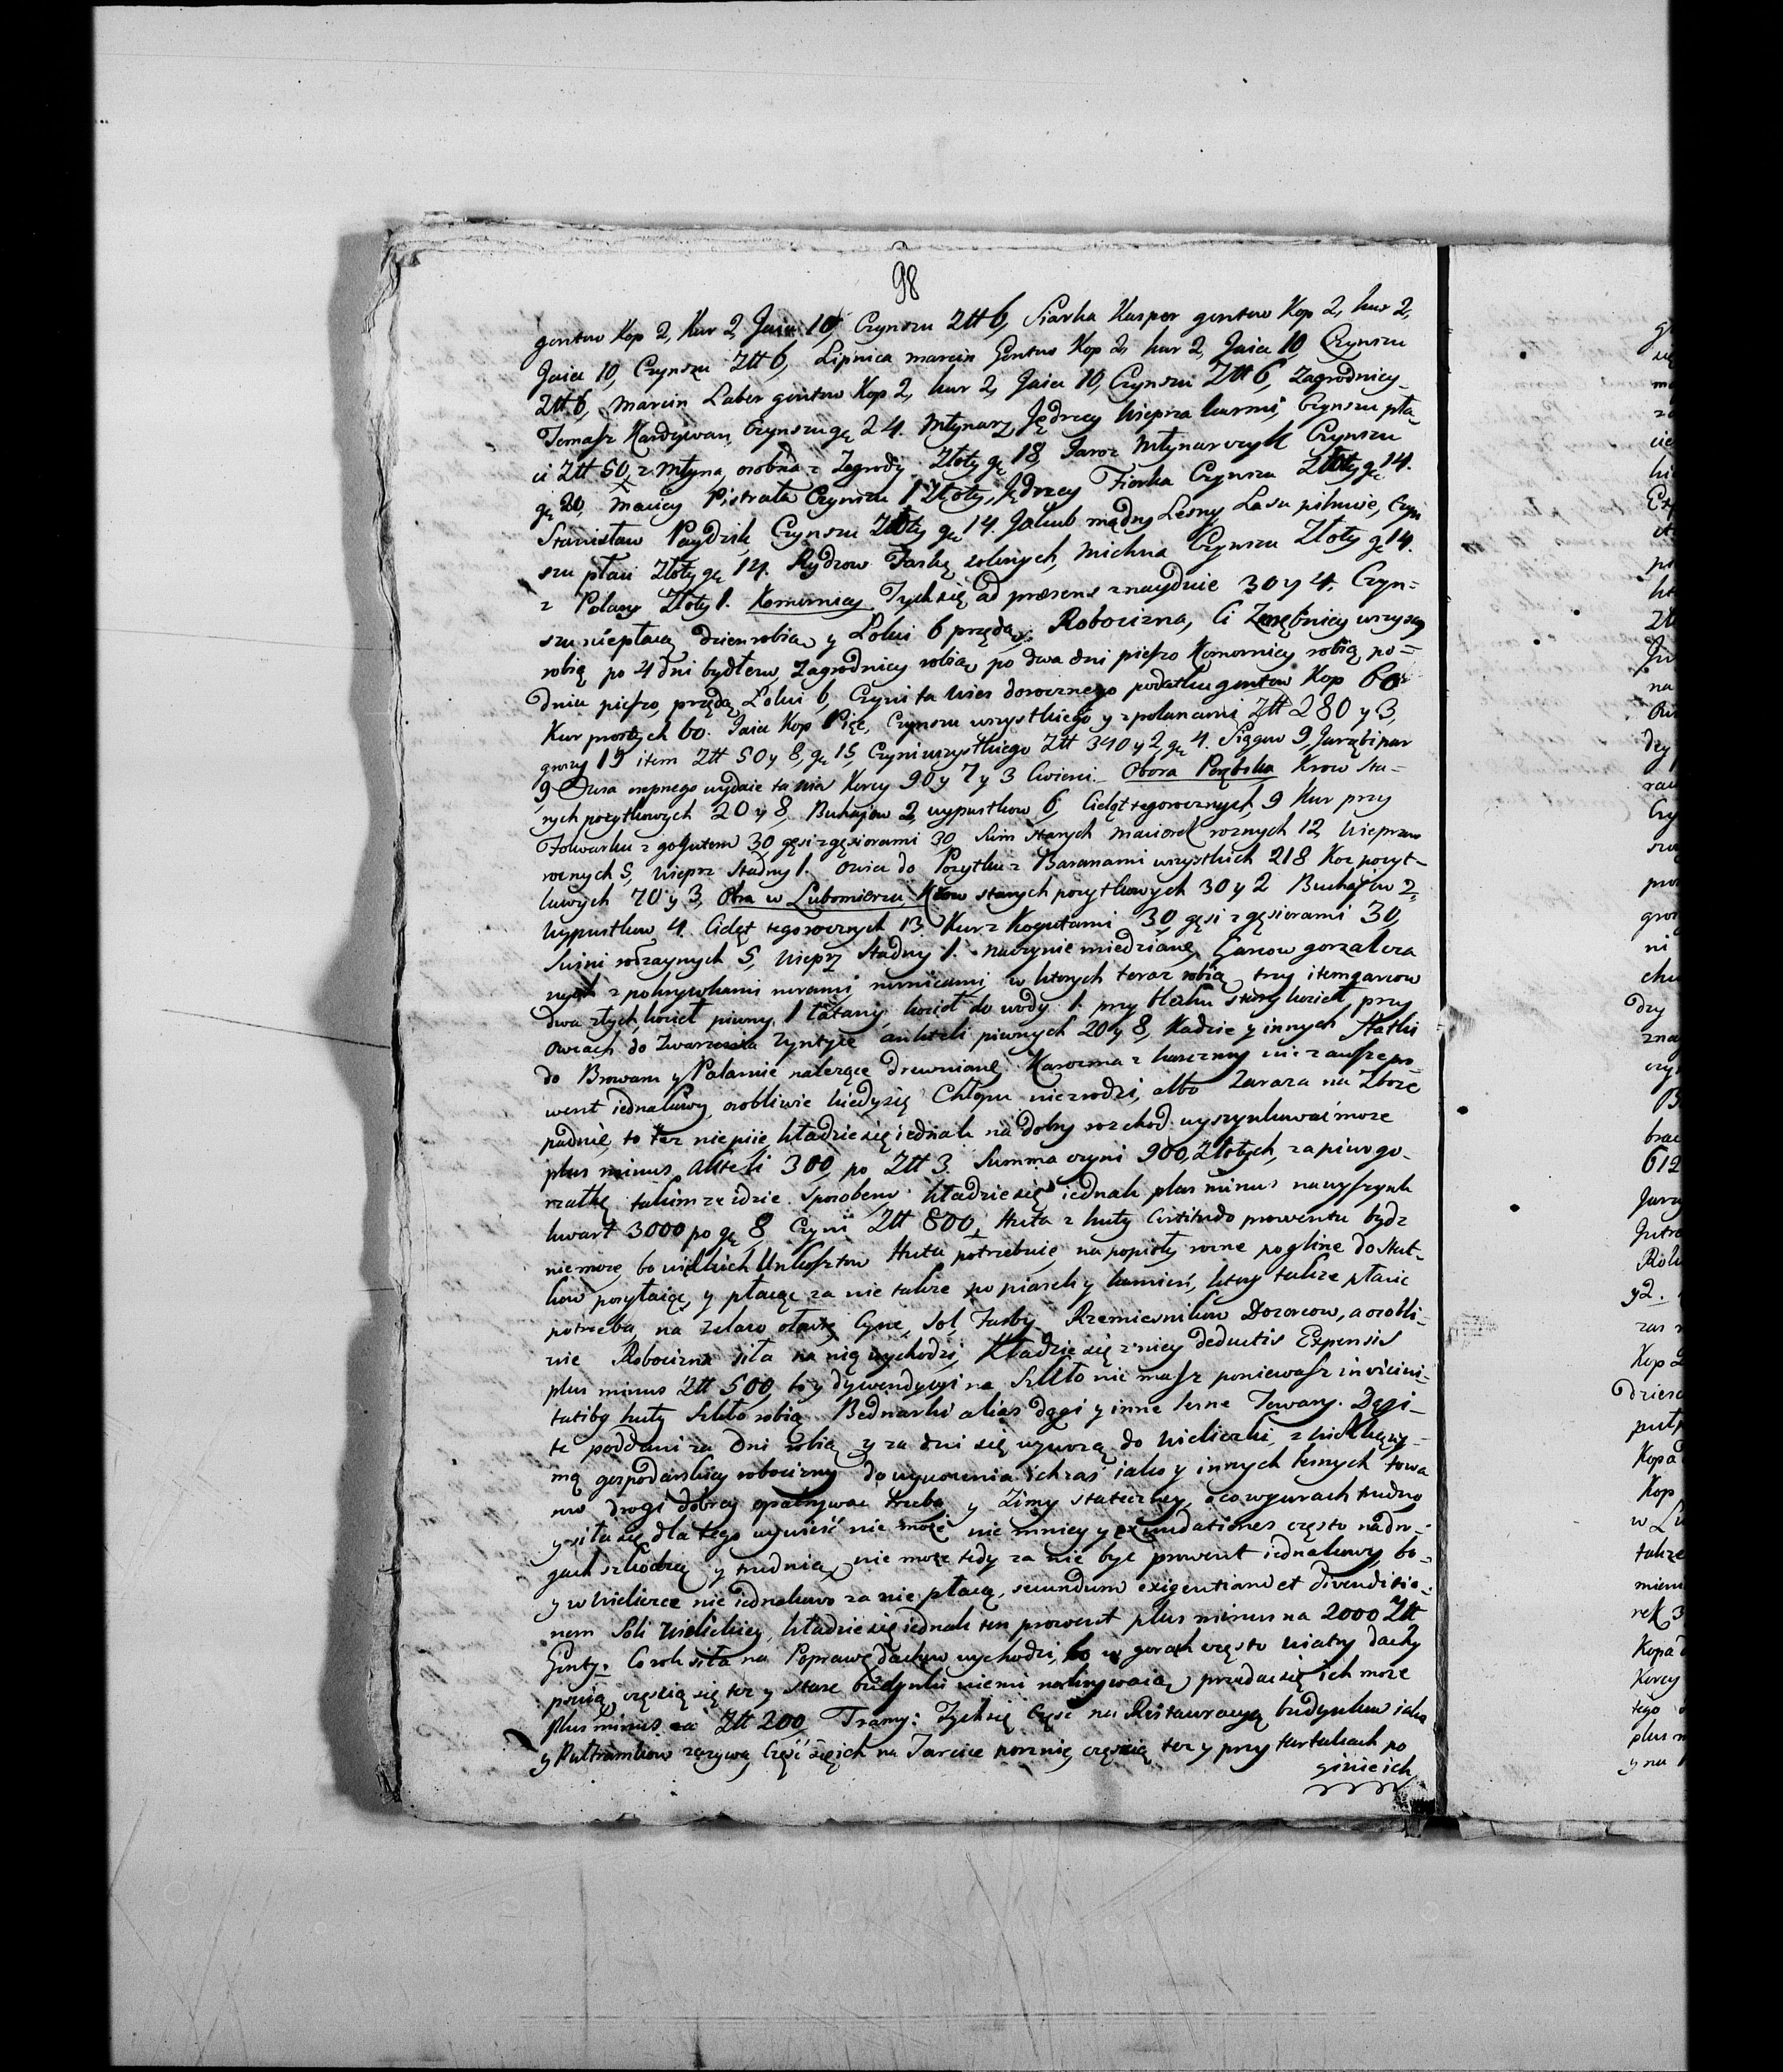 98
gontow Kop 2, Kur 2, Jaia 10, Czynszu Ztt 6, Siarka Kasper gontow Kop 2, kur 2,
Jaia 10, Czynszu Ztt 6, Lipnica marcin Gontow Kop 2, kur 2, Jaia 10, Czynszu
Ztt 6, Marcin Laber gontow Kop 2, kur 2, Jaia 10, Czynszu Ztt 6, Zagrodnicy
Tomasz Czynszu gę 24. Młynarz Jędrzey Wieprza karmi, Czynszu pła-
ci Ztt 50, z Młyna, osobna z Zagrody Złoty gę 18, Jaroz Młynarczyk Czynszu
gę 20, Maciey Pistrała Czynszu 1 Złoty, Jędrzey Fiorka Czynszu Złoty gę 14.
Stanisław Paydzik Czynszu Złoty gę 14. Jakub mądry Lesny Lasu pilnuie, Czyn
szu płaci Złoty gę 14. Rydzow Faskę solonych, Michna Czynszu Złoty gę 14.
z Polany Złoty 1. Komornicy Tych się ad præsens znayduie 30 y 4. Czyn=
szu niepłacą dzien robią y Łokci 6 przędą; Robocizna, Ci Zarębnicy wszyscy
robią po 4 dni bydłem, Zagrodnicy robią po dwa dni pieszo Komornicy robią po=
dniu pieszo, przędą Łokci 6, Czyni ta Wies dorocznego podatku gontow Kop 60
Kur prostych 60. Jaia Kop Pięć, Czynszu wszystkiego y z polanami Ztt 280 y 3,
groszy 19 item Ztt 50 y 8, gę 15, Czyni wszystkiego Ztt 340 y 2 gę 4. Sięgow 9, Jarząbi par
9 Owsa osepnego wydaie ta wies Korcy 90 y 7 y 3 Cwierci. Obora Porębska Krow sta=
rych pożytkowych 20 y 8, Buhajow 2, wypustkow 6, Cieląt tegorocznych 9 Kur przy
Folwarku z gogutem 30, gęsi z gęsiorami 30, Swin starych maciorek roznych 12, Wieprzow
rocznych 5, Wieprz stadny 1. Owiec do Pożytku z Baranami wszystkich 218 Koz pozyt-
kowych 70 y 3, Obra w Lubomierzu, Krow starych pozytkowych 30 y 2 Buhajow 2,
Wypustkow 4. Cieląt tegorocznych 13. Kur z Kogutami 30, gęsi z gęsiorami 30,
Swini rodzaynych 5, Wieprz stadny 1. Naczynie miedziane, Garcow gorzałcza
nych z pokrywkami rurami rurnicami w ktorych teraz robią trzy item garcow
dwa złych, kocieł piwny 1 łatany, kocioł do wody 1. przy blechu stary kocieł, przy
Owcach do zwarzenia zyntyce, antheli piwnych 20 y 8, Kadzie y innych Statki
do Browaru y Palarnie nalezące drewniane. Karczma z karczmy nie zawsze pro
went iednakowy, osobliwie kiedy się Chłopu niezrodzi, albo Zaraza na Zboze
padnie, to tez niepiie, kładzie się iednak na dobry rozchod wyszynkować moze
plus minus Akteli 300, po Ztt 3. Summa czyni 900, Złotych, za piwo go-
rzałkę takimze idzie sposobem. kładzie się iednak plus minus na wyszynk
kwart 3000 po gę 8, Czyni Ztt 800, Huta z huty Certitudo prowentu bydz
niemoze bo wielkich Unkosztow Huta potrzebuie, na popioły rozne po glinę do stat-
kow posyłaiąc, y płacąc za nie takze po piasek y kamień, ktory takze płacic
potrzeba, na zelazo ołow, Cynę, Sol, Farby Rzemiesnikow Dozorcow, a osobli-
wie Robocizna siła na nię wychodzi, Kładzie się z niey deductis Expensis
plus minus Ztt 500, bo y dywendycyi na Szkło nie masz poniewasz in vicini-
tatibg huty Szkło robią. Bednarki alias dągi y inne lesne Towary. Dągi-
te poddani za Dni robią y za dni się wywozą do Wieliczki, z wielką zy-
mą gospodarskiey robocizny do wywozenia ich zaś iako y innych lesnych Towa
row drogi dobrey opatrywac trzeba y Zimy stateczney, o co w gurach trudno
y siła się dla tego wywieść nie moze nie mniey y exundationes często na dro-
gach szkodzą y trudnią, nie moze tedy za nie byc prowent iednakowy, bo-
y w Wieliczce nie iednakowo za nie płacą, secundum exigentiam et divenditio-
nem Soli Wielickiey, kładzie się iednak ten prowent plus minus na 2000 Ztt
Gonty: Co rok siła na Poprawę dachow wychodzi, bo w gorach często wiatry dachy
psuią częścią się tez y stare budynki niemi nakrywaią, przedac się ich moze
plus minus za Ztt 200, Tramy: Tych się Część na Restauracyą budynkow iako
y Pultramkow zazywa, Część się ich na Tarcice porznie, częścią tez y przy tartakach po
ginie ich